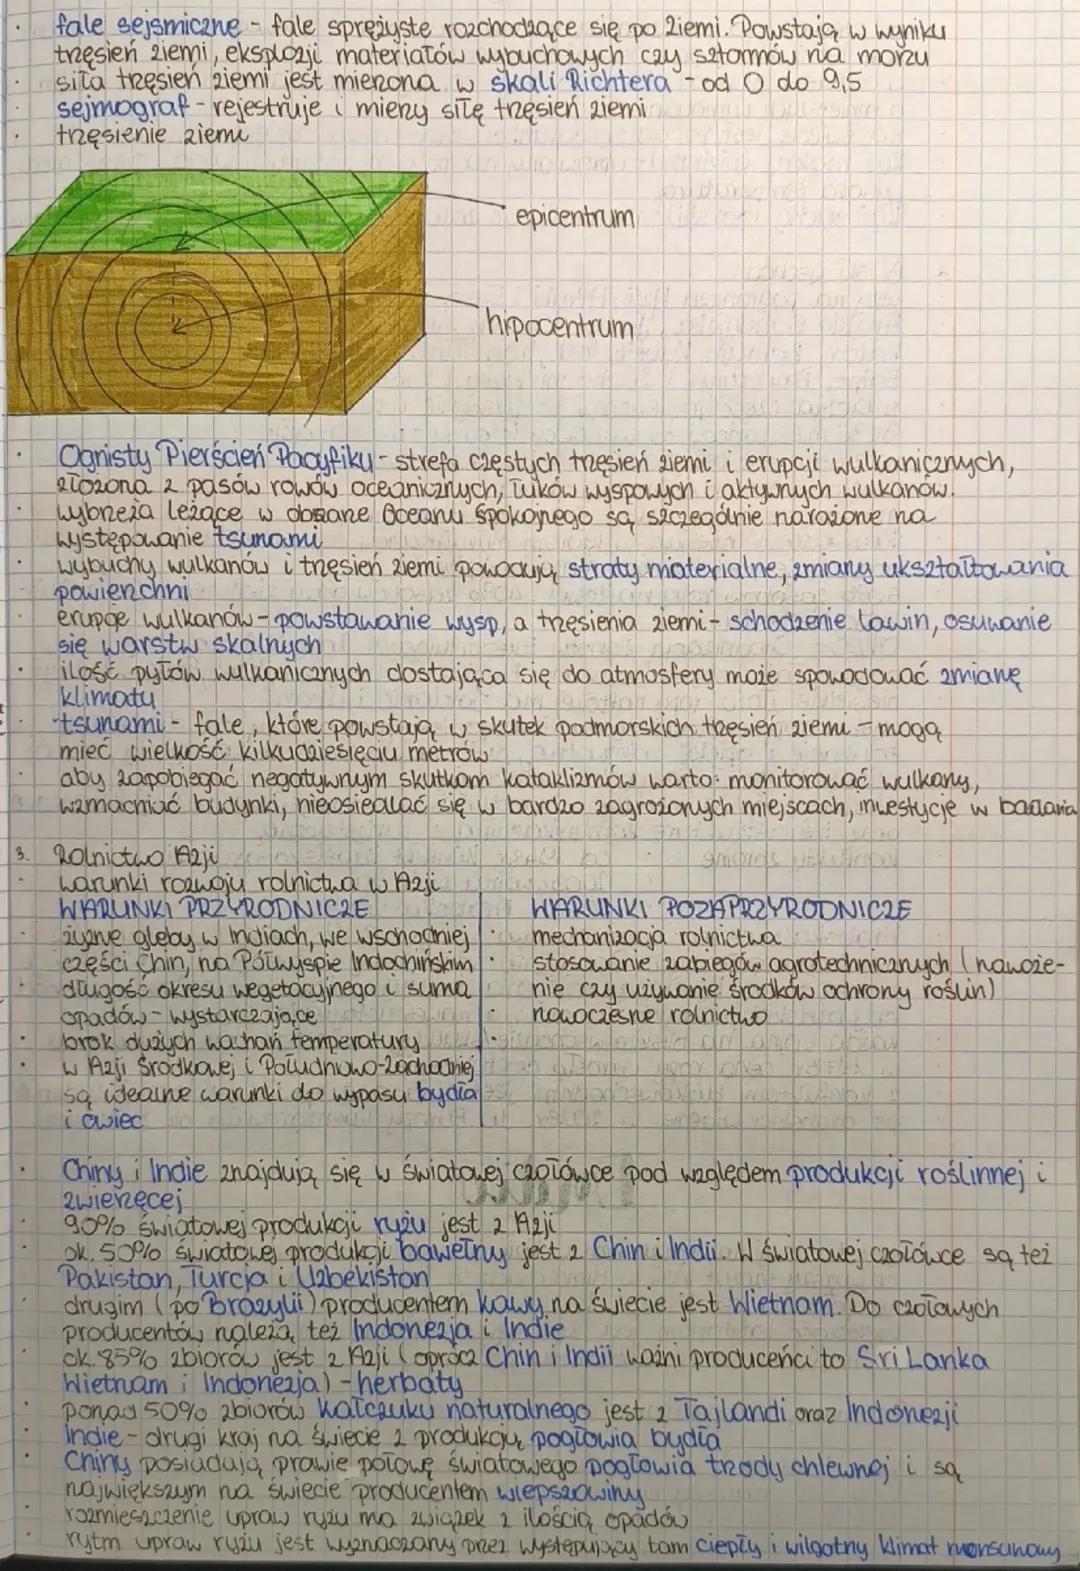 fale sejsmiczne - fale sprężyste rozchodzące się po Ziemi. Powstają w wyniku
trzęsień ziemi, eksplozji materiałów wybuchowych czy sztormów na morzu
siła trzęsień ziemi jest mierzona w skali Richtera - od 0 do 9,5
sejmograf - rejestruje i mierzy siłę trzęsień ziemi
trzęsienie ziemi
epicentrum
hipocentrum
Ognisty Pierścień Pacyfiku - strefa częstych trzęsień ziemi i erupcji wulkanicznych,
złożona z pasów rowów oceanicznych, łuków wyspowych i aktywnych wulkanów.
wybrzeża leżące w obszarze Oceanu Spokojnego są szczególnie narażone na
występowanie tsunami
wybuchy wulkanów i trzęsień ziemi powodują straty materialne, zmiany ukształtowania
powierzchni
erupcje wulkanów - powstawanie wysp, a trzęsienia ziemi - schodzenie lawin, osuwanie
się warstw skalnych
ilość pyłów wulkanicznych dostająca się do atmosfery może spowodować zmianę
klimatu
tsunami - fale, które powstają w skutek podmorskich trzęsień ziemi - mogą
mieć wielkość kilkudziesięciu metrów
aby zapobiegać negatywnym skutkom kataklizmów warto: monitorować wulkany,
wzmacniać budynki, nieosiedlać się w bardzo zagrożonych miejscach, inwestycje w badania
3. Rolnictwo Azji
warunki rozwoju rolnictwa w Azji
WARUNKI PRZYRODNICZE
żyzne gleby w Indiach, we wschodniej
części Chin, na Półwyspie Indochińskim
długość okresu wegetacyjnego i suma
opadów - wystarczające
brak dużych wachań temperatury
w Azji Środkowej i Południowo-Zachodniej
są idealne warunki do wypasu bydła
i owiec
WARUNKI POZAPRZYRODNICZE
mechanizacja rolnictwa
stosowanie zabiegów agrotechnicznych (nawoże-
nie czy używanie środków ochrony roślin)
nowoczesne rolnictwo
Chiny i Indie znajdują się w światowej czołówce pod względem produkcji roślinnej i
zwierzęcej
90% światowej produkcji ryżu jest z Azji
ok. 50% światowej produkcji bawełny jest z Chin i Indii. W światowej czołówce są też
Pakistan, Turcja i Uzbekistan
drugim (po Brazylii) producentem kawy na świecie jest Wietnam. Do czołowych
producentów należą też Indonezja i Indie
ok. 85% zbiorów jest z Azji (oprócz Chin i Indii ważni producenci to Sri Lanka
Wietnam i Indonezja) - herbaty
ponad 50% zbiorów kałczuku naturalnego jest z Tajlandi oraz Indonezji
Indie - drugi kraj na świecie z produkcją pogłowia bydła
Chiny posiadają prawie połowę światowego pogłowia trzody chlewnej i są
największym na świecie producentem wieprzowiny
rozmieszczenie upraw ryżu ma związek z ilością opadów
rytm upraw ryżu jest wyznaczany przez występujący tam ciepły i wilgotny klimat monsunowy